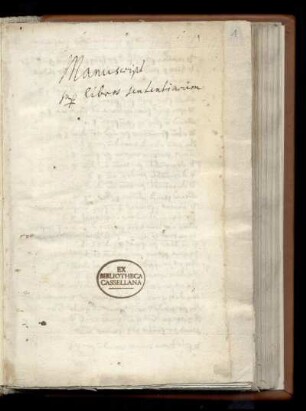 Manuscript
libros sententiarum
EX
BIBLIOTHECA
CASSELLANA